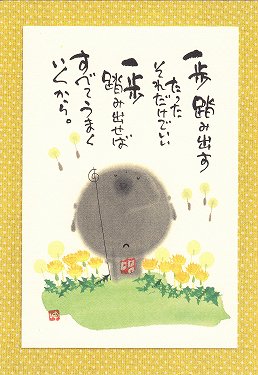 一歩踏み出す
たった
それだけでいい
一歩
踏み出せば
すべてうまく
いくから。